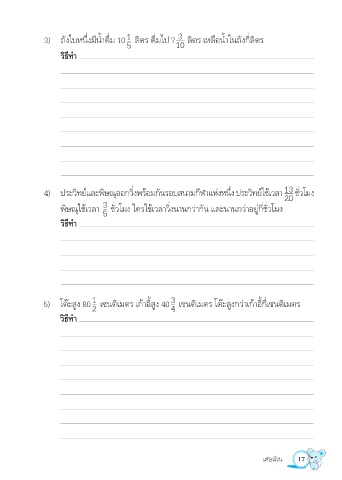 3) ถังใบหนึ่งมีน้ำดื่ม 10 1/5 ลิตร ดื่มไป 7 3/10 ลิตร เหลือน้ำในถังกี่ลิตร
วิธีทำ
4) ประวิทย์และพิษณุออกวิ่งพร้อมกันรอบสนามกีฬาแห่งหนึ่ง ประวิทย์ใช้เวลา 13/20 ชั่วโมง
พิษณุใช้เวลา 3/5 ชั่วโมง ใครใช้เวลาวิ่งนานกว่ากัน และนานกว่าอยู่กี่ชั่วโมง
วิธีทำ
5) โต๊ะสูง 80 1/2 เซนติเมตร เก้าอี้สูง 40 3/4 เซนติเมตร โต๊ะสูงกว่าเก้าอี้กี่เซนติเมตร
วิธีทำ
เศษส่วน 17